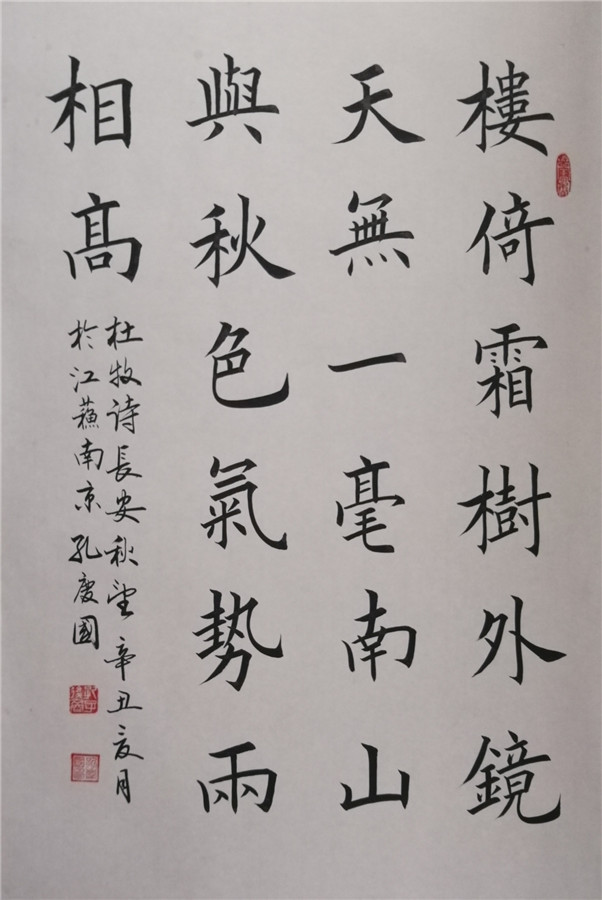 樓倚霜樹外鏡
天無一毫南山
與秋色氣勢兩
相髙
杜牧诗長安秋望 辛丑夏月
於江蘇南京 孔慶國